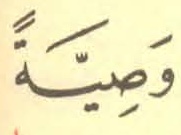 وَصِيَّةً